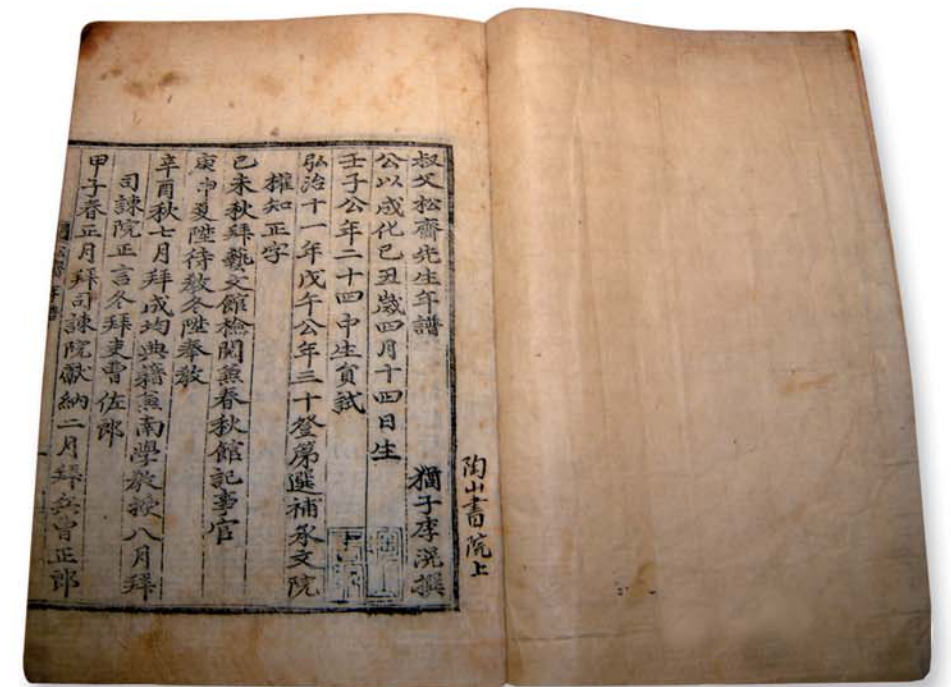 陶山書院上
叔父松齋先生年譜 猶子李滉撰
公以成化己丑歲四月十四日生
壬子公年二十四中生貟試
弘治十一年戊午公年三十登第選補承文院
權知正字
己未秋拜藝文館檢閱兼春秋館記事官
庚申夏陞待教冬陞奉教
辛酉秋七月拜成均典籍兼南學教授八月拜
司諫院正言冬拜吏曹佐郎
甲子春正月拜司諫院獻納二月拜兵曹正郎